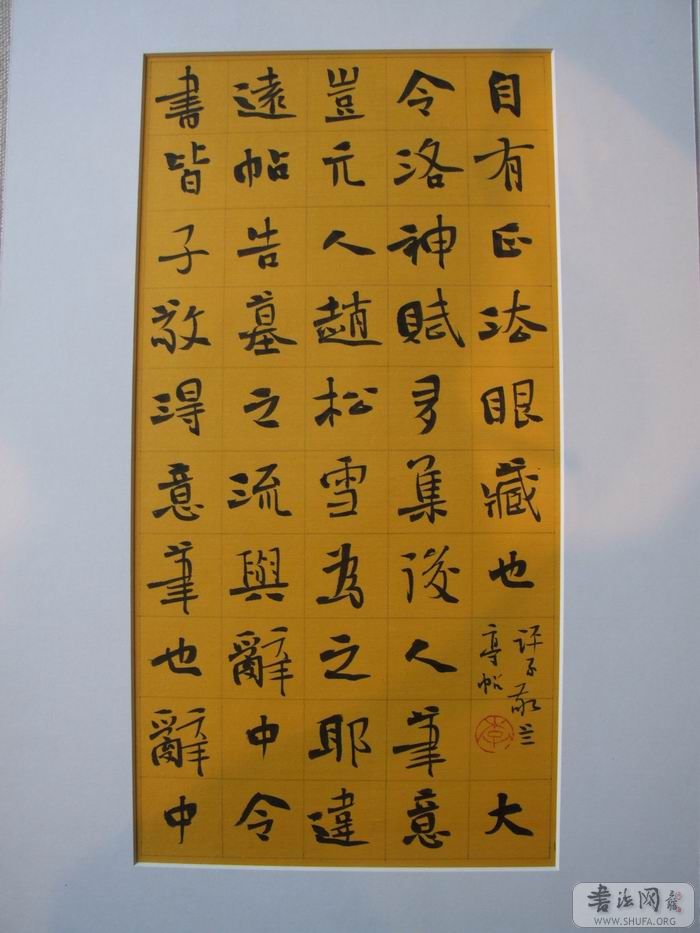 自有正法眼藏也
评子敬兰
亭帖
大
令洛神賦多集後人筆意
豈元人趙松雪為之耶違
遠帖告墓之流與辭中令
書皆子敬得意筆也辭中
书法网
WWW.SHUFA.ORG